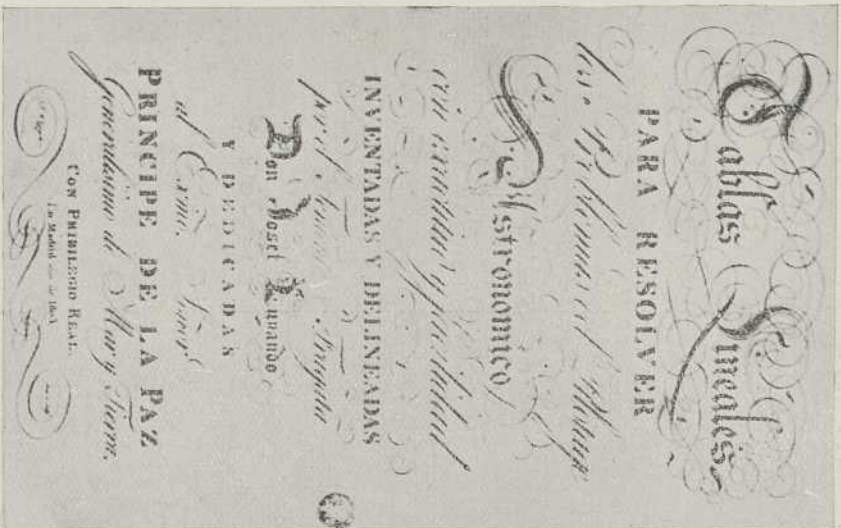 Tablas Lineales
PARA RESOLVER
los Problemas del Pilotage
Astronomico,
con exactitud y facilidad
INVENTADAS Y DELINEADAS
por el de Fragata
Don Josef Luyando
Y DEDICADAS
al Exmo. Señor
PRINCIPE DE LA PAZ
Generalisimo de Mar y Tierra.
CON PRIBILEGIO REAL.
En Madrid año de